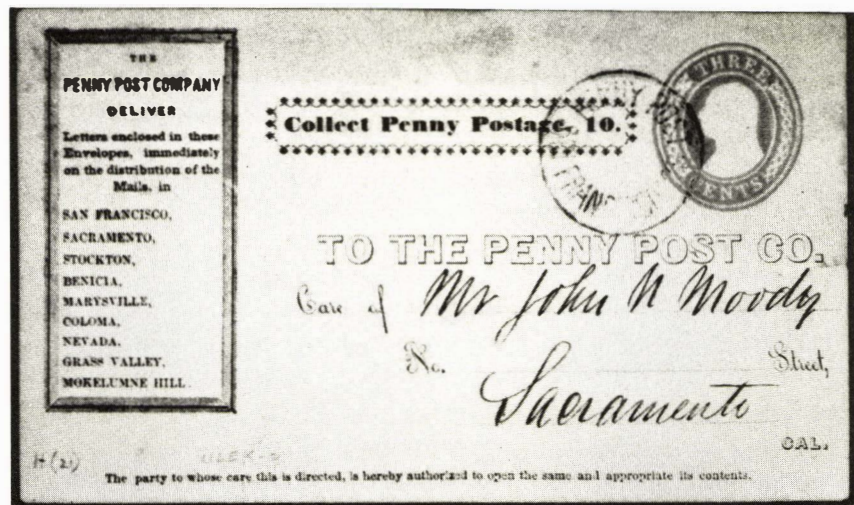 THE
PENNY POST COMPANY
DELIVER
Letters enclosed in these
Envelopes, immediately
on the distribution of the
Mails, in
SAN FRANCISCO,
SACRAMENTO,
STOCKTON,
BENICIA,
MARYSVILLE,
COLOMA,
NEVADA,
GRASS VALLEY,
MOKELUMNE HILL.
Collect Penny Postage, 10.
THREE
CENTS
TO THE PENNY POST CO.
Care of Mr John N Moody
No. Street,
Sacramento
CAL.
H(21)
The party to whose care this is directed, is hereby authorized to open the same and appropriate its contents.